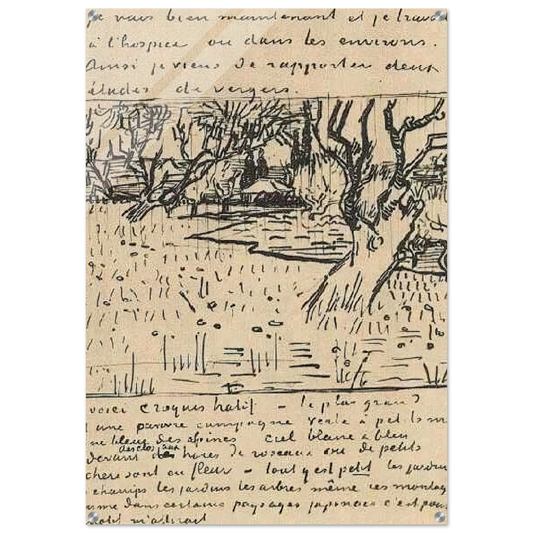 je vais bien maintenant et je travaille
à l'hospice ou dans les environs.
Ainsi je viens de rapporter deux
études de vergers.
voici croquis hatif – le plus grand
une pauvre campagne verte à pet
ne bleu des alpines ciel blanc & bleu
devant des clos aux haies de roseaux ou de petits
sont en fleur – tout y est petit les jardins
champs les jardins les arbres même ces montag
mme dans certains paysages japonais c'est pour
m'attirait